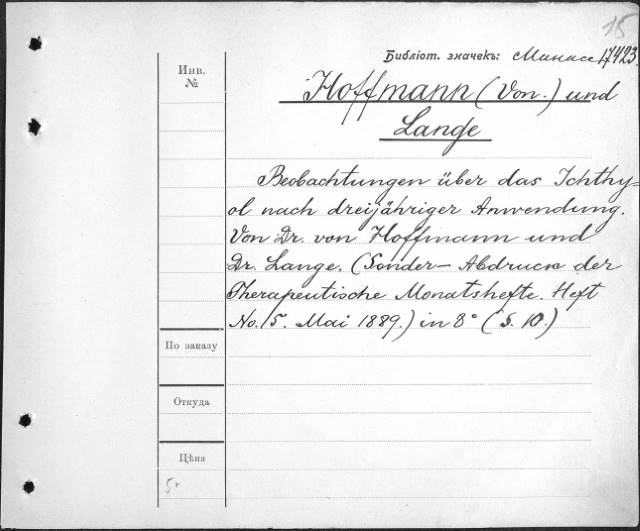 15
Библіот. значекъ: Манассе 17423.
Инв.
№
Hoffmann (Von.) und
Lange
Beobachtungen über das Ichthy=
ol nach dreijähriger Anwendung.
Von Dr. von Hoffmann und
Dr. Lange. (Sonder-Abdruck der
Therapeutische Monatshefte. Heft
No. 5. Mai 1889.) in 8° (S. 10.)
По заказу
Откуда
Цѣна